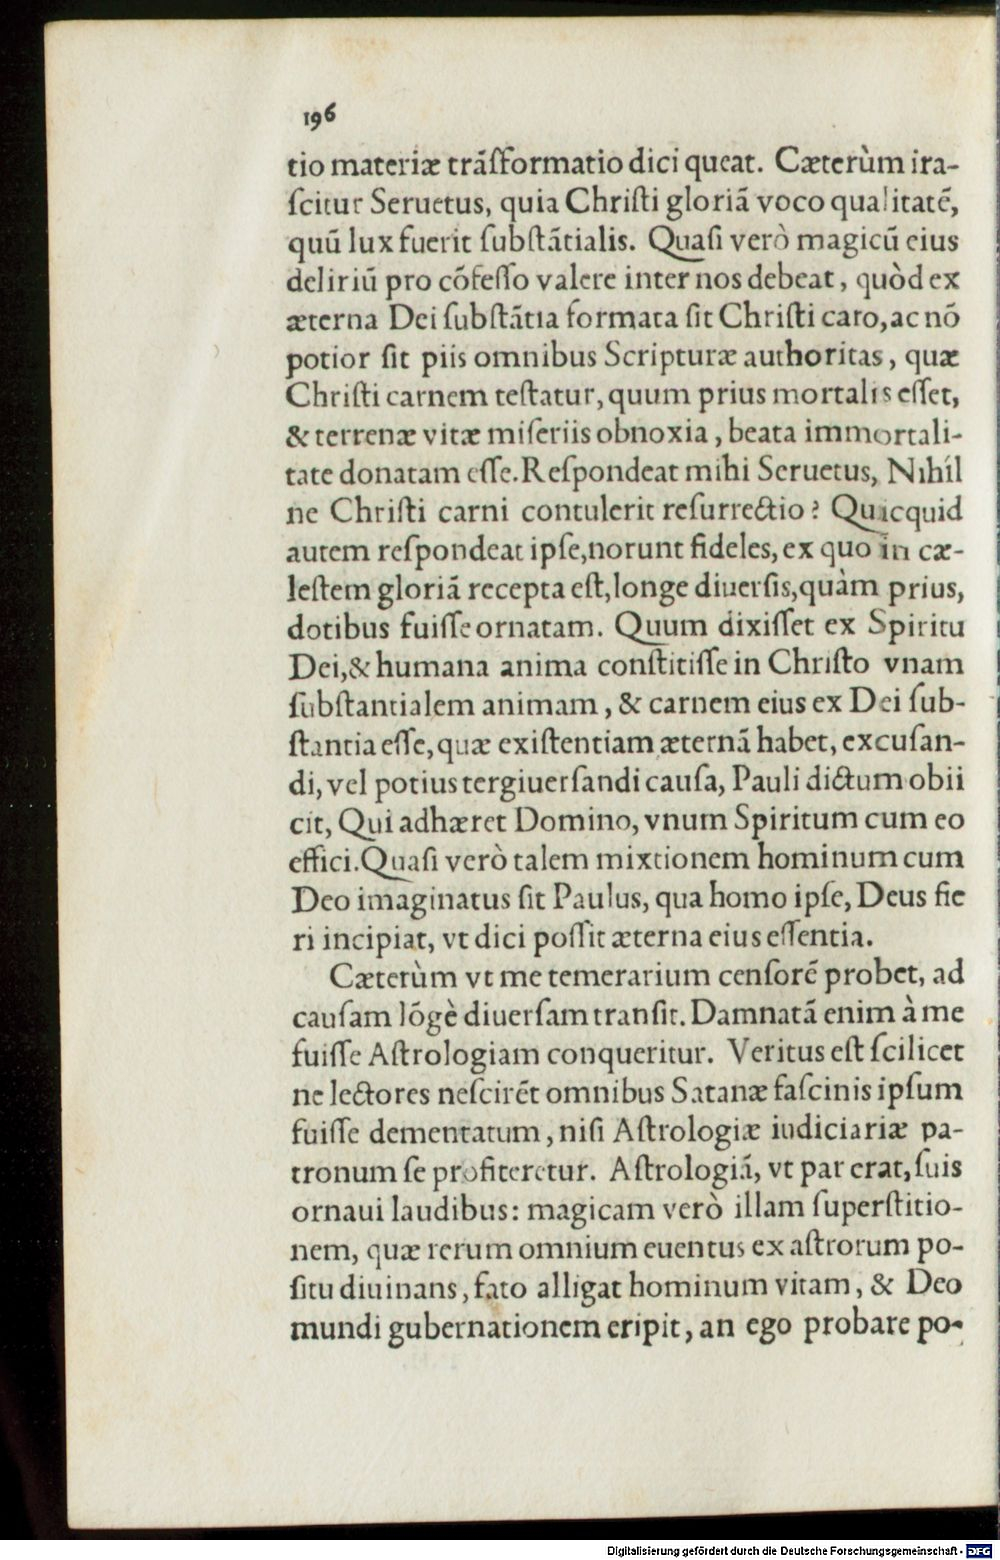 196
tio materiæ trãſformatio dici queat. Cæterùm ira-
ſcitur Seruetus, quia Chriſti gloriã voco qualitatẽ,
quũ lux fuerit ſubſtãtialis. Quaſi verò magicũ eius
deliriũ pro cõfeſſo valere inter nos debeat, quòd ex
æterna Dei ſubſtãtia formata ſit Chriſti caro, ac nõ
potior ſit piis omnibus Scripturæ authoritas, quæ
Chriſti carnem teſtatur, quum prius mortalis eſſet,
& terrenæ vitæ miſeriis obnoxia, beata immortali-
tate donatam eſſe. Reſpondeat mihi Seruetus, Nihíl
ne Chriſti carni contulerit reſurrectio? Quicquid
autem reſpondeat ipſe, norunt fideles, ex quo in cæ-
leſtem gloriã recepta eſt, longe diuerſis, quàm prius,
dotibus fuiſſe ornatam. Quum dixiſſet ex Spiritu
Dei, & humana anima conſtitiſſe in Chriſto vnam
ſubſtantialem animam, & carnem eius ex Dei ſub-
ſtantia eſſe, quæ exiſtentiam æternã habet, excuſan-
di, vel potius tergiuerſandi cauſa, Pauli dictum obii
cit, Qui adhæret Domino, vnum Spiritum cum eo
effici. Quaſi verò talem mixtionem hominum cum
Deo imaginatus ſit Paulus, qua homo ipſe, Deus fie
ri incipiat, vt dici poſſit æterna eius eſſentia.
Cæterùm vt me temerarium cenſorẽ probet, ad
cauſam lõgè diuerſam tranſit. Damnatã enim à me
fuiſſe Aſtrologiam conqueritur. Veritus eſt ſcilicet
ne lectores neſcirẽt omnibus Satanæ faſcinis ipſum
fuiſſe dementatum, niſi Aſtrologiæ iudiciariæ pa-
tronum ſe profiteretur. Aſtrologiã, vt par erat, ſuis
ornaui laudibus: magicam verò illam ſuperſtitio-
nem, quæ rerum omnium euentus ex aſtrorum po-
ſitu diuinans, fato alligat hominum vitam, & Deo
mundi gubernationem eripit, an ego probare po-
Digitalisierung gefördert durch die Deutsche Forschungsgemeinschaft - DFG